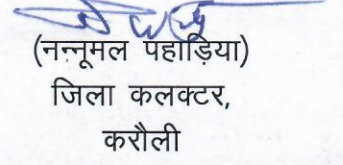 (नन्नूमल पहाड़िया)
जिला कलक्टर,
करौली